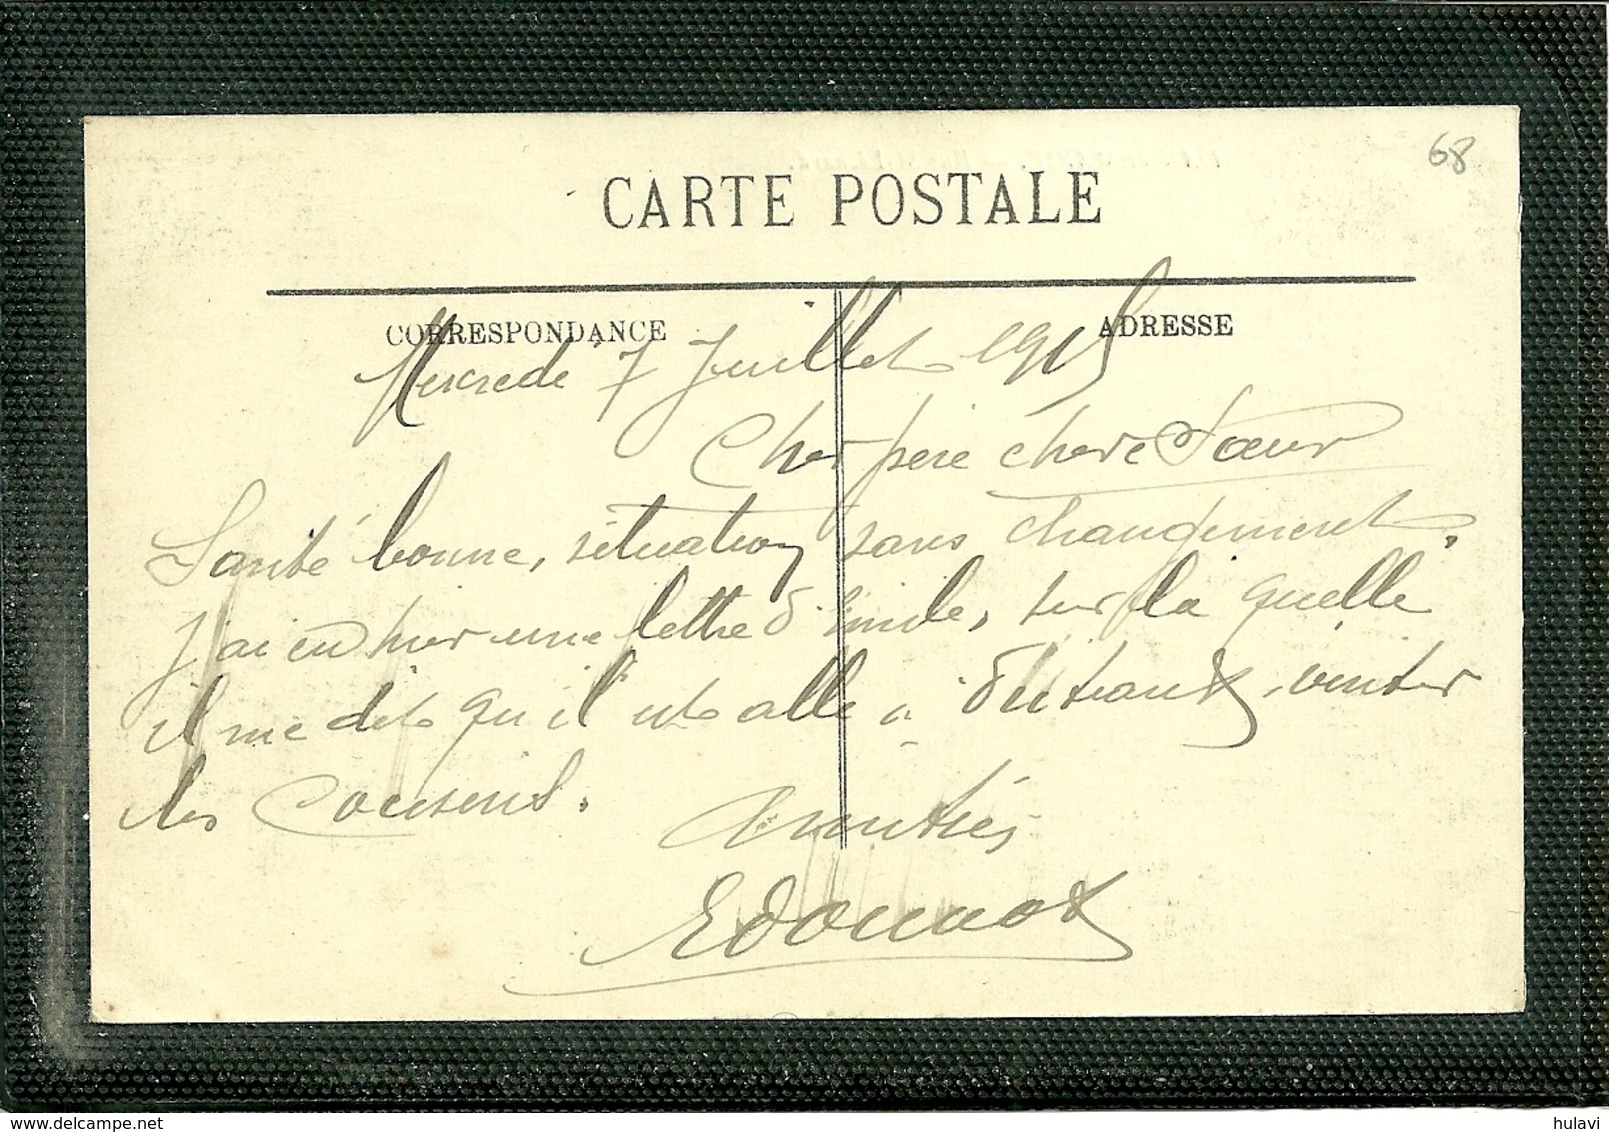 68
CARTE POSTALE
CORRESPONDANCE
ADRESSE
Mercredi 7 Juillet 1915
Cher père chere Sœur
Santé bonne, situation sans changement.
J'ai eu hier une lettre d'Emile, sur la quelle
il me dit qu'il est alle à visiter
les Cousins.
Amitiés
Edouard
delcampe.net
hulavi